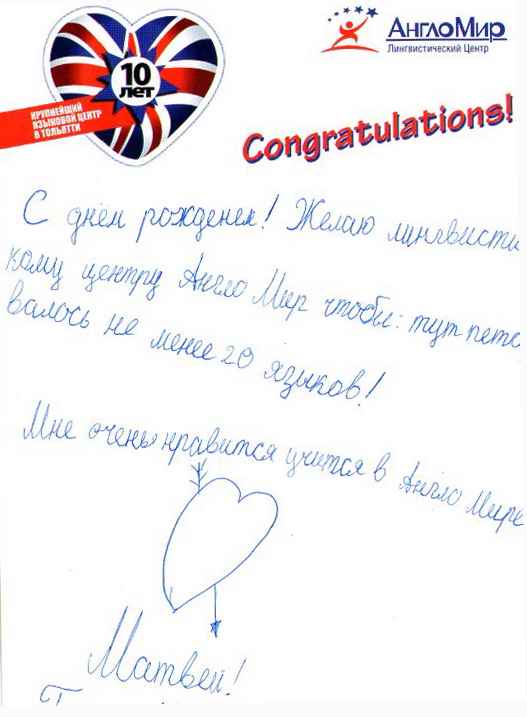 10
ЛЕТ
КРУПНЕЙШИЙ
ЯЗЫКОВОЙ ЦЕНТР
В ТОЛЬЯТТИ
АнглоМир
Лингвистический Центр
Congratulations!
С днём рожденек! Желаю лингвисти
кому центру Англо Мир чтобы: тут
валось не менее 20 языков!
Мне очень нравится учится в Англо Мире
Матвей!